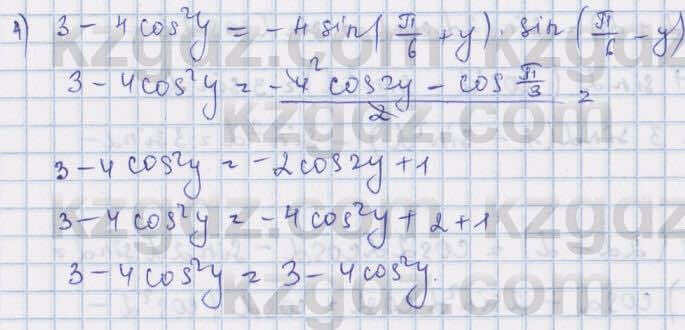 4) 3 - 4 cos²y = -4 sin(π/6 + y) · sin(π/6 - y)
3 - 4cos²y = (-4² cos2y - cos π/3)/2 =
3 - 4 cos²y = -2cos2y + 1
3 - 4 cos²y = -4 cos²y + 2 + 1
3 - 4cos²y = 3 - 4cos²y.
kzgdz.com